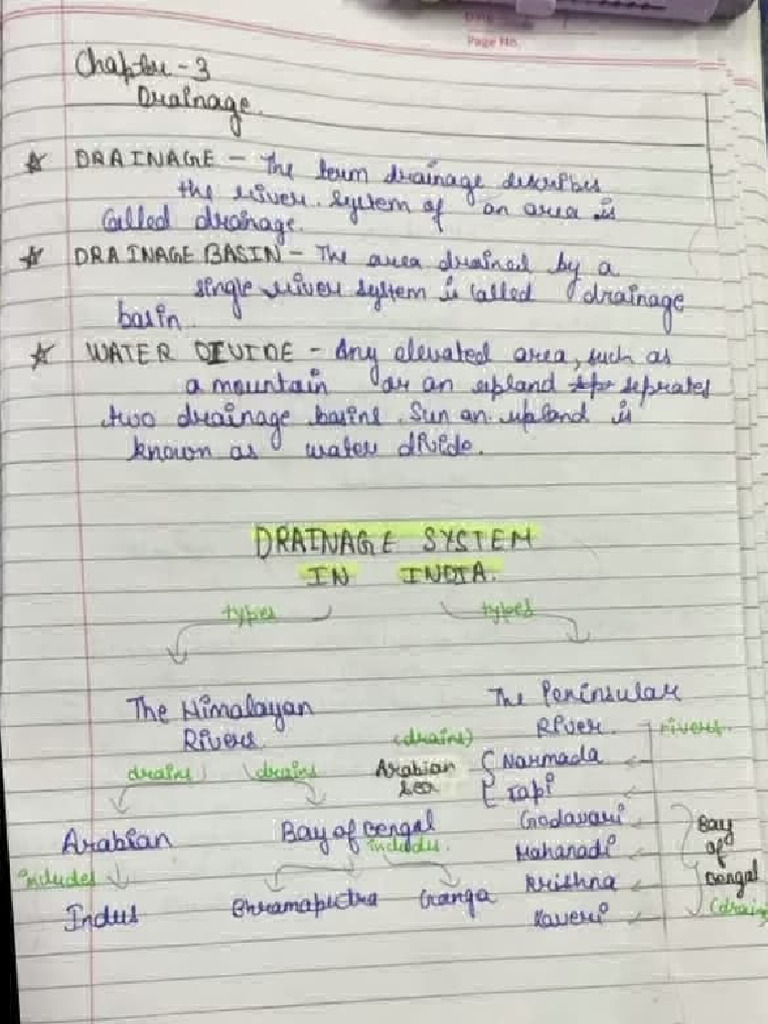 Page No.
Chapter - 3
Drainage.
☆ DRAINAGE - The term drainage describes
the river system of an area is
called drainage.
☆ DRAINAGE BASIN - The area drained by a
single river system is called drainage
basin.
☆ WATER DIVIDE - Any elevated area, such as
a mountain or an upland seprates
two drainage basins. Sun an upland is
known as water divide.
DRAINAGE SYSTEM
IN INDIA.
types types
The Himalayan
Rivers.
The Peninsular
River. rivers.
drains drains
(drains)
Arabian
Sea
Narmada
Tapi
Godavari
Mahanadi
Krishna
Kaveri
Bay
of
Bengal
(drain
Arabian
Bay of Bengal
includes
includes
Indus
Bhramaputra
Ganga